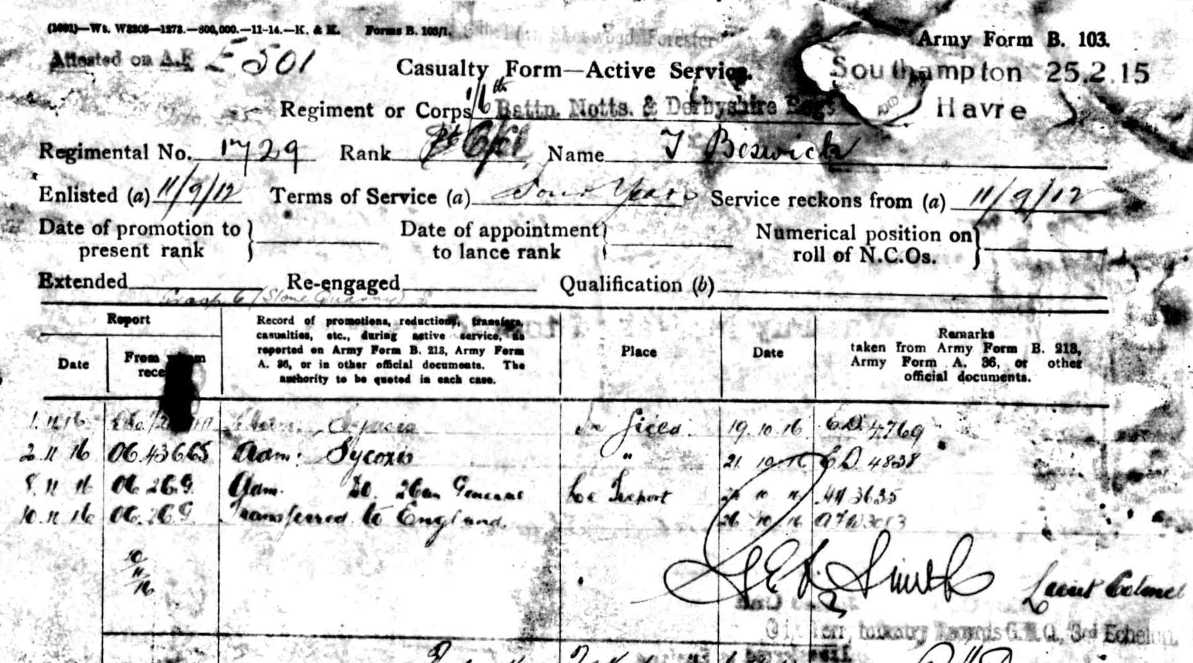 (1691)—Wt. W3808—1273.—800,000.—11-14.—K. & K. Forms B. 103/1.
Army Form B. 103.
Attested on A.F. E 501
Casualty Form—Active Service.
Southampton 25.2.15
Regiment or Corps 1/6th Battn. Notts. & Derbyshire Regt
Havre
Regimental No. 1729 Rank Name J Beswick
Enlisted (a) 11/9/12 Terms of Service (a) Four Years Service reckons from (a) 11/9/12
Date of promotion to present rank } Date of appointment to lance rank } Numerical position on roll of N.C.Os. }
Extended Re-engaged Qualification (b)
Report
Date From whom received
Record of promotions, reductions, transfers, casualties, etc., during active service, as reported on Army Form B. 213, Army Form A. 36, or in other official documents. The authority to be quoted in each case.
Place
Date
Remarks taken from Army Form B. 213, Army Form A. 36, or other official documents.
1.11.16 In Field. 19.10.16 CD 4769
2.11.16 06.43665 Adm: Sycosis " 21.10.16 CD 4838
8.11.16 06.269 Adm. Do. 26 Gen Le Treport 10 3635
10.11.16 06.269 Transferred to England. 26 10 16
10/11/16
Smith Lieut Colonel
Infantry Records G.H.Q., 3rd Echelon,